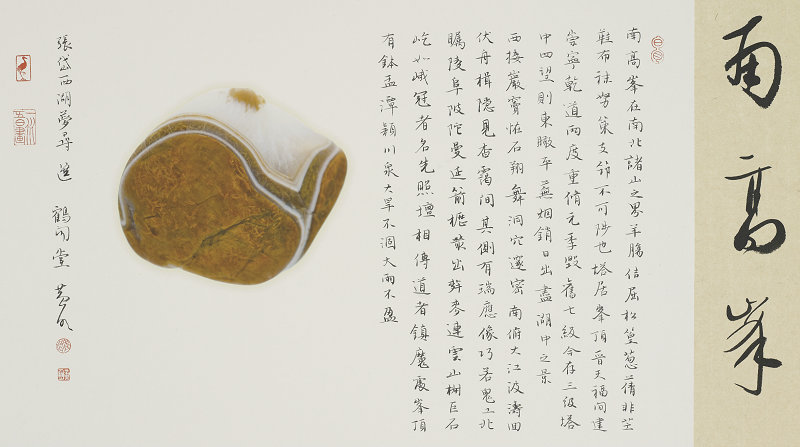 南高峯
南高峯在南北諸山之界羊腸佶屈松篁葱蒨非芒
鞋布襪努策支笻不可陟也塔居峯頂晉天福間建
崇寧乾道兩度重脩元季毀舊七級今存三級塔
中四望則東瞰平蕪烟銷日出盡湖中之景
西接巖竇怪石翔舞洞穴邃密南俯大江波濤洄
伏舟楫隱見杳靄間其側有瑞應像巧若鬼工北
矚陵阜陂陀曼延箭櫪叢出麰麥連雲山椒巨石
屹如峨冠者名先照壇相傳道者鎮魔處峯頂
有鉢盂潭潁川泉大旱不涸大雨不盈
張岱西湖夢尋選 鶴閒堂